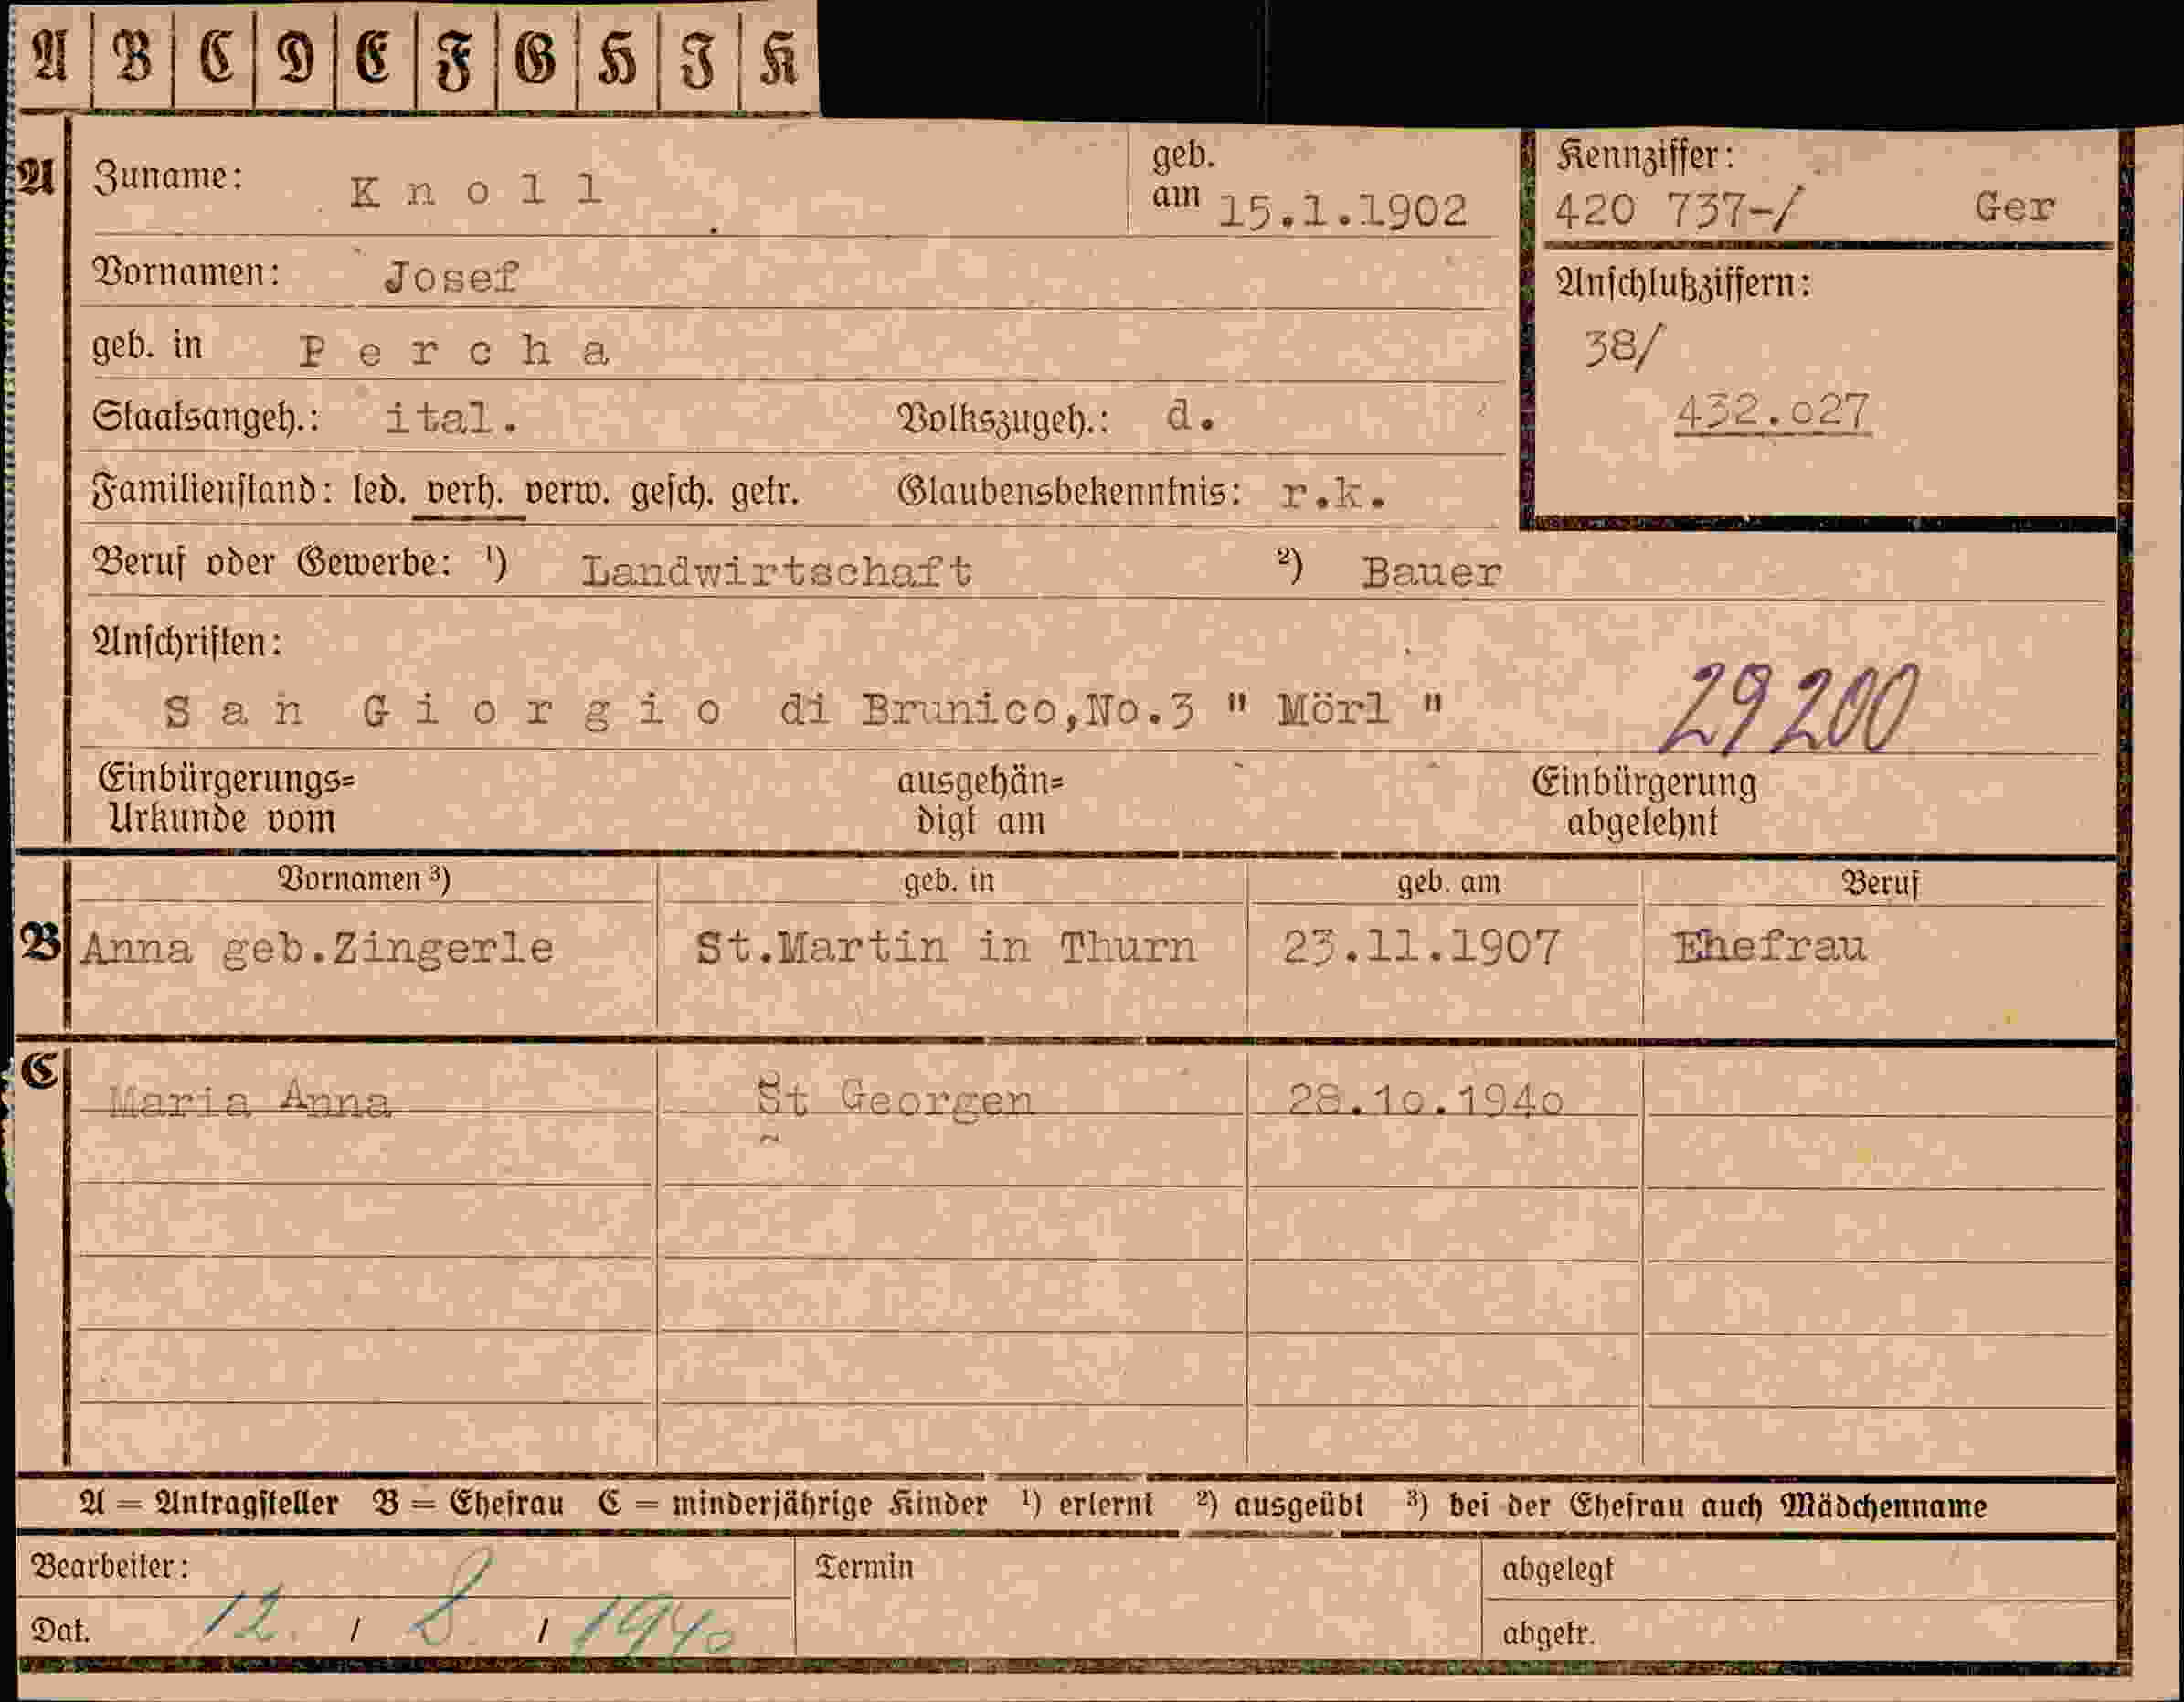 A B C D E F G H I K
A Zuname: Knoll geb. am 15.1.1902
Kennziffer: 420 737-/ Ger
Vornamen: Josef
Anschlußziffern:
geb. in Percha
38/
Staatsangeh.: ital. Volkszugeh.: d.
432.027
Familienstand: led. verh. verw. gesch. getr. Glaubensbekenntnis: r.k.
Beruf oder Gewerbe: ¹) Landwirtschaft ²) Bauer
Anschriften:
San Giorgio di Brunico,No.3 " Mörl "
29200
Einbürgerungs= ausgehän= Einbürgerung
Urkunde vom digt am abgelehnt
Vornamen ³) geb. in geb. am Beruf
B Anna geb.Zingerle St.Martin in Thurn 23.11.1907 Ehefrau
C
Maria Anna St Georgen 28.1o.194o
A = Antragsteller B = Ehefrau C = minderjährige Kinder ¹) erlernt ²) ausgeübt ³) bei der Ehefrau auch Mädchenname
Bearbeiter: Termin abgelegt
Dat. 12. / 8. / 1940 abgetr.